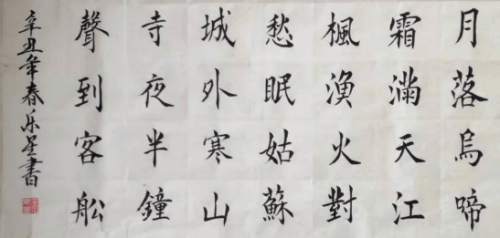 月落烏啼
霜滿天江
楓漁火對
愁眠姑蘇
城外寒山
寺夜半鐘
聲到客舩
辛丑年春乐星書